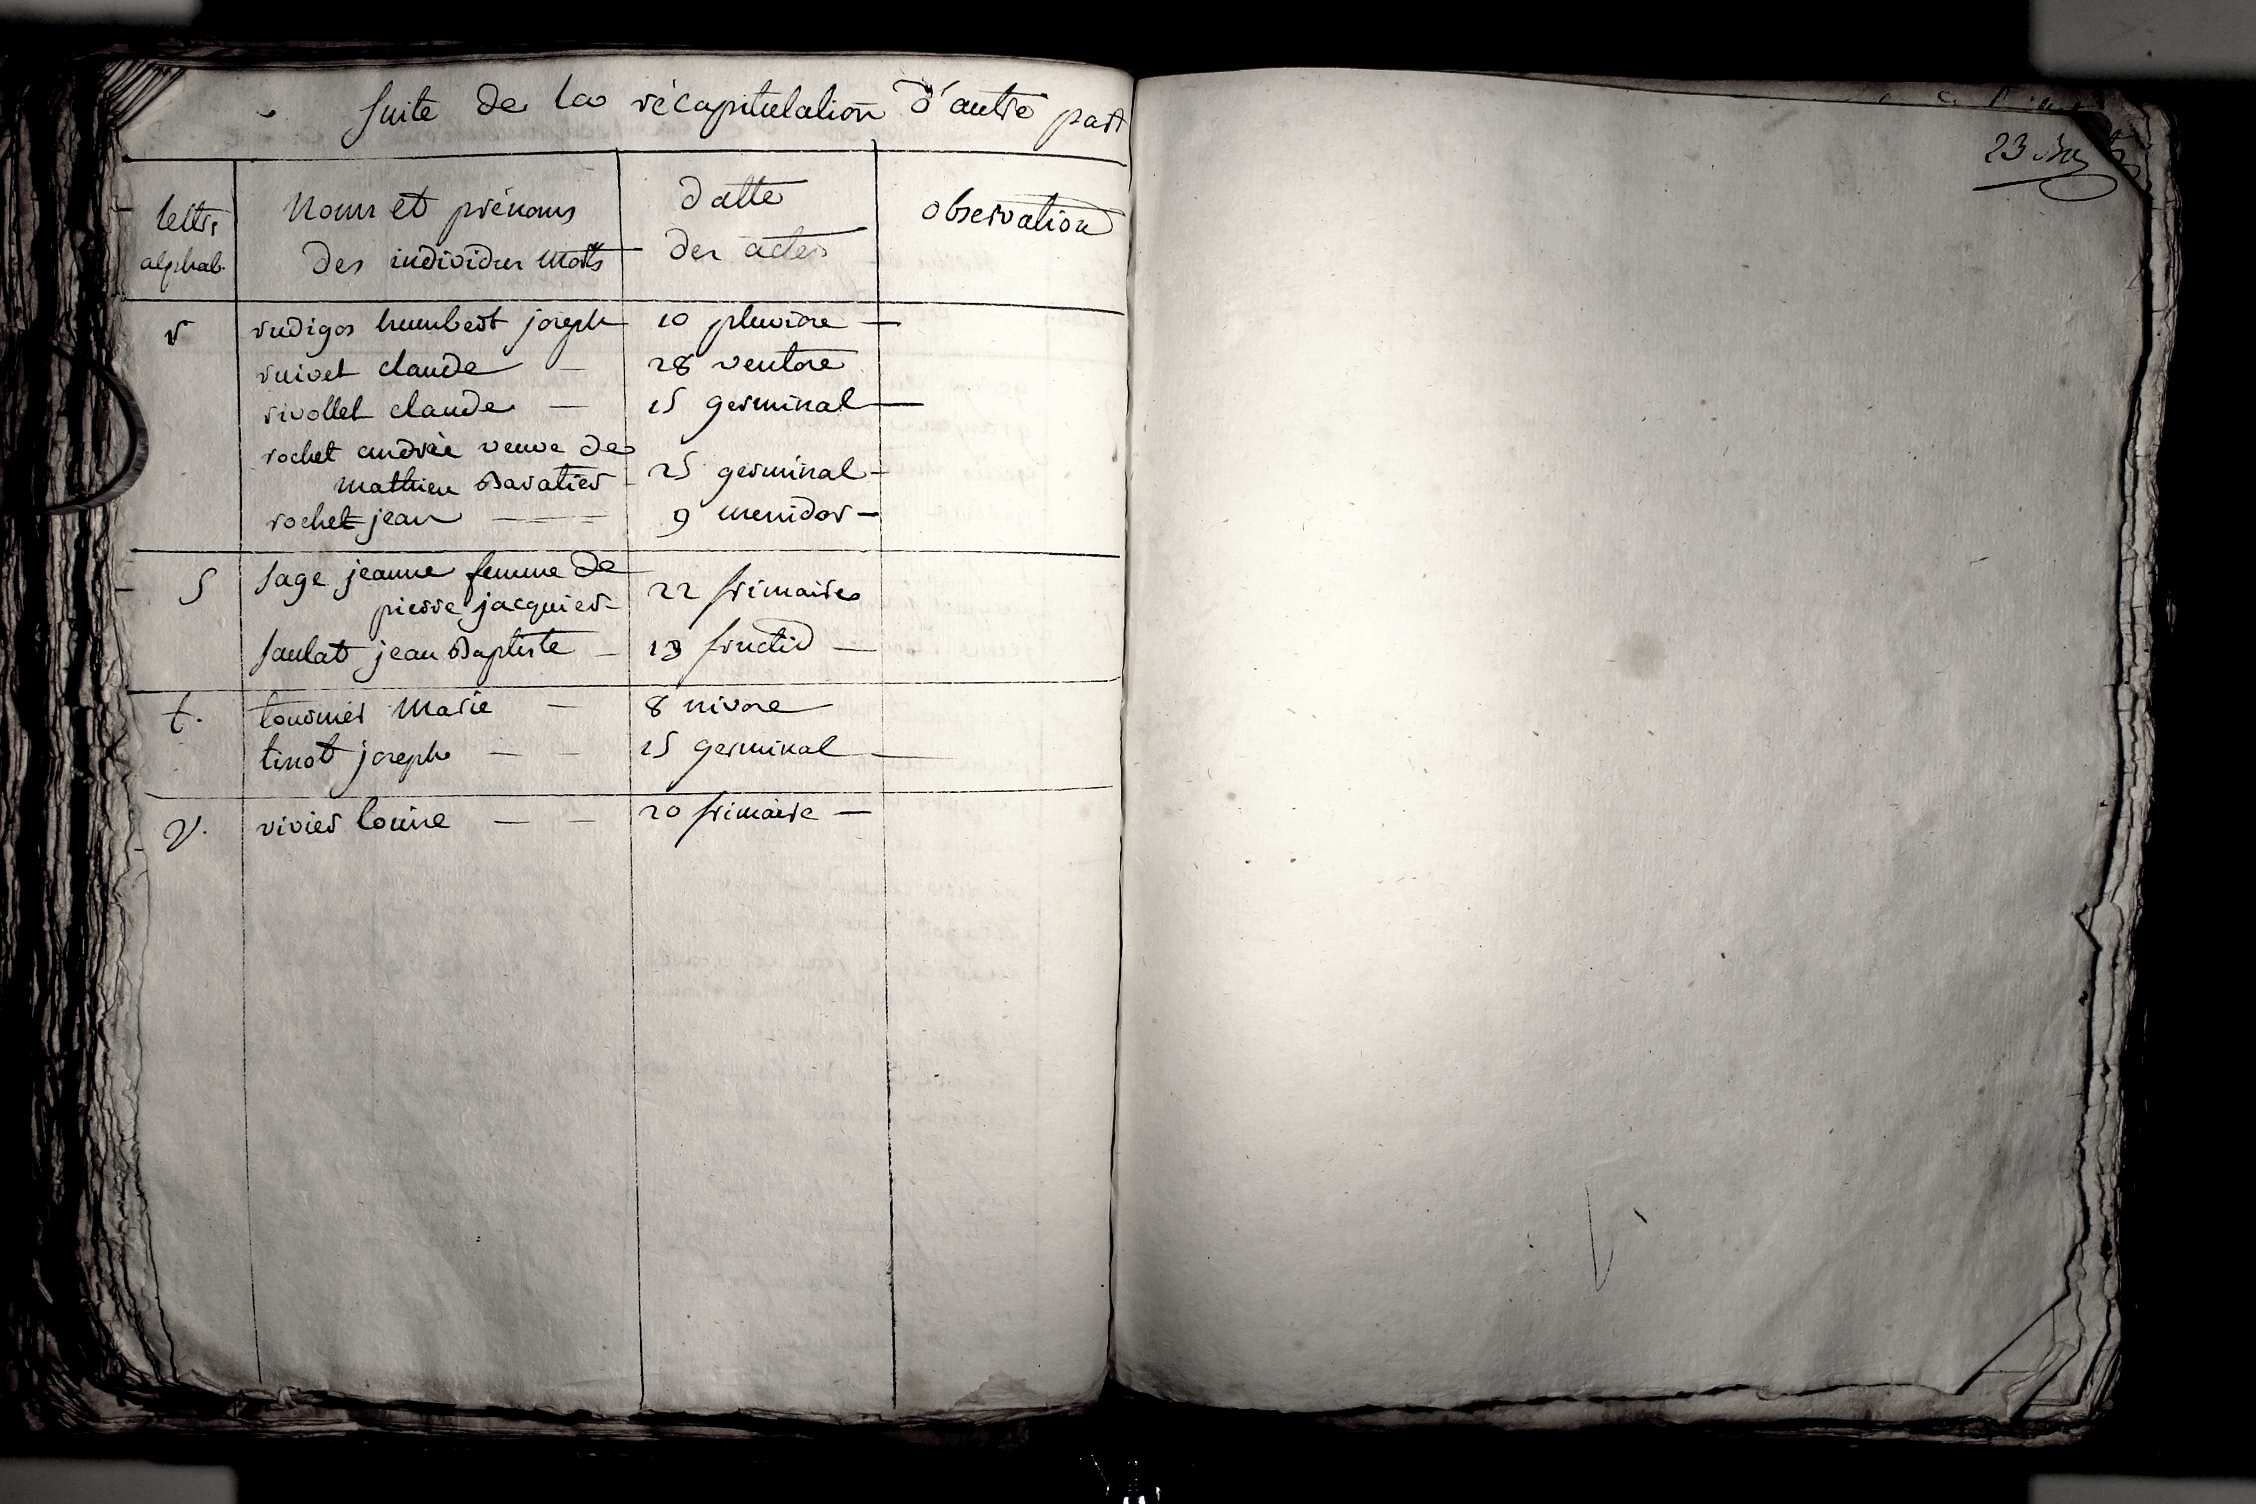 suite de la récapitulation d'autre part
lettr alphab. | Noms et prénoms des individus morts | datte des actes | observation
r | rudigos humbert joseph | 10 pluviose —
ruivet claude — | 28 ventose
rivollet claude — | 15 germinal —
rochet andrée veuve de
mathieu Baratier | 25 germinal —
rochet jean — | 9 messidor —
S | sage jeanne femme de
pierre jacquier | 22 frimaire
saulat jean Baptiste — | 13 fructid —
t. | tournier Marie — | 8 nivose
tinot joseph — — | 15 germinal —
V. | vivier louise — — | 20 frimaire —
23